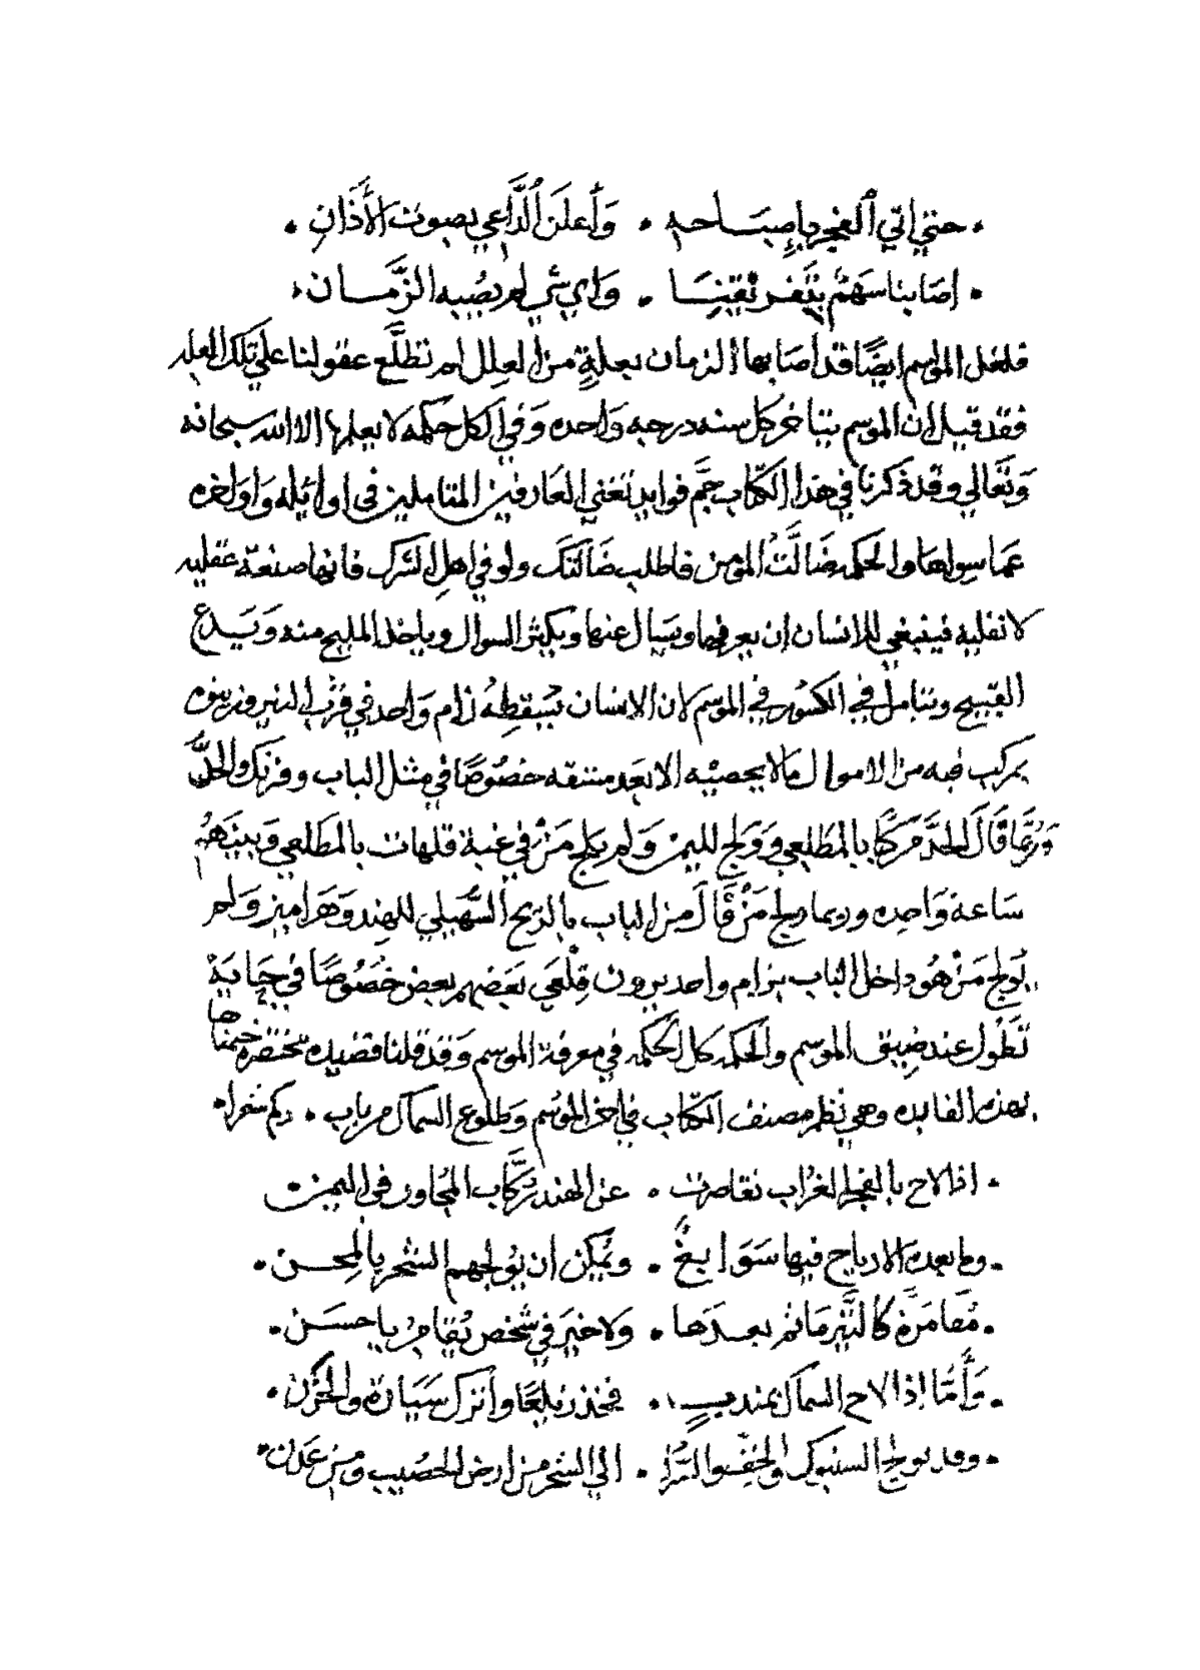 حتي اتي الفجر باصباحه • وأعلن الداعي بصوت الأذان •
• اصابنا سهم بثغر نقينا • واي شي لم يصيبه الزمان
فلعل الموسم ايضًا قد اصابها الزمان بعلةٍ من العلل لم تطلّع عقولنا علي تلك العله
فقد قيل ان الموسم يتاخر كل سنه درجه واحده وفي الكل حكمه لا يعلمها الا الله سبحانه
وتعالي وقد ذكرنا في هذا الكتاب جمّ فوايد تغني العارفين المتاملين في اوائله واواخره
عما سواها والحكمه ضالّت المومن فاطلب ضالتك ولو في اهل الشرك فانها صنعة عقليه
لا نقليه فينبغي للانسان ان يعرفها ويسال عنها ويكثر السوال وياخذ المليح منه ويدع
القبيح ويتامل في الكسور في الموسم لان الانسان يسقطه زام واحد في قرب النيروز
يركب فيه من الاموال ما لا يحصيه الا بعد مشقه خصوصًا في مثل الباب وفرتك والحدّ
وربما قال الحدّ مركبًا بالمطلعي وولج لليمن ولم يلج من في غبة قلهات بالمطلعي وبينهم
ساعة واحده وربما ولج من قال من الباب بالريح السهيلي للهند وهراميز ولم
يولج من هو داخل الباب بزام واحد يرون قلعي بعضهم بعض خصوصًا في
تطول عند ضيق الموسم والحكمه كل الحكمه في معرفة الموسم وقد قلنا قصيده مختصره ختمناها
بهذه الفايده وهي نظم مصنف الكتاب في اخر الموسم وطلوع السماك من باب • شعرا •
• اذا لاح بالفجر الغراب تقاصرت • عن الهند ركّاب المجاور في اليمن •
• وما بعده الارياح فيها سوابغ • ويمكن ان يولجهم الشحر بالمحن •
• مقامرة كالنرد ما ثم بعدها • ولا خير في شخص يقامر يا حسن •
• وأمّا اذا لاح السماك بمنديبٍ • فخذ زيلعًا وانزل سيارة والحزن •
• وقد يولج السنبوك والخفّ والترا • الي الشحر من ارض الحصيب ومن عدن •